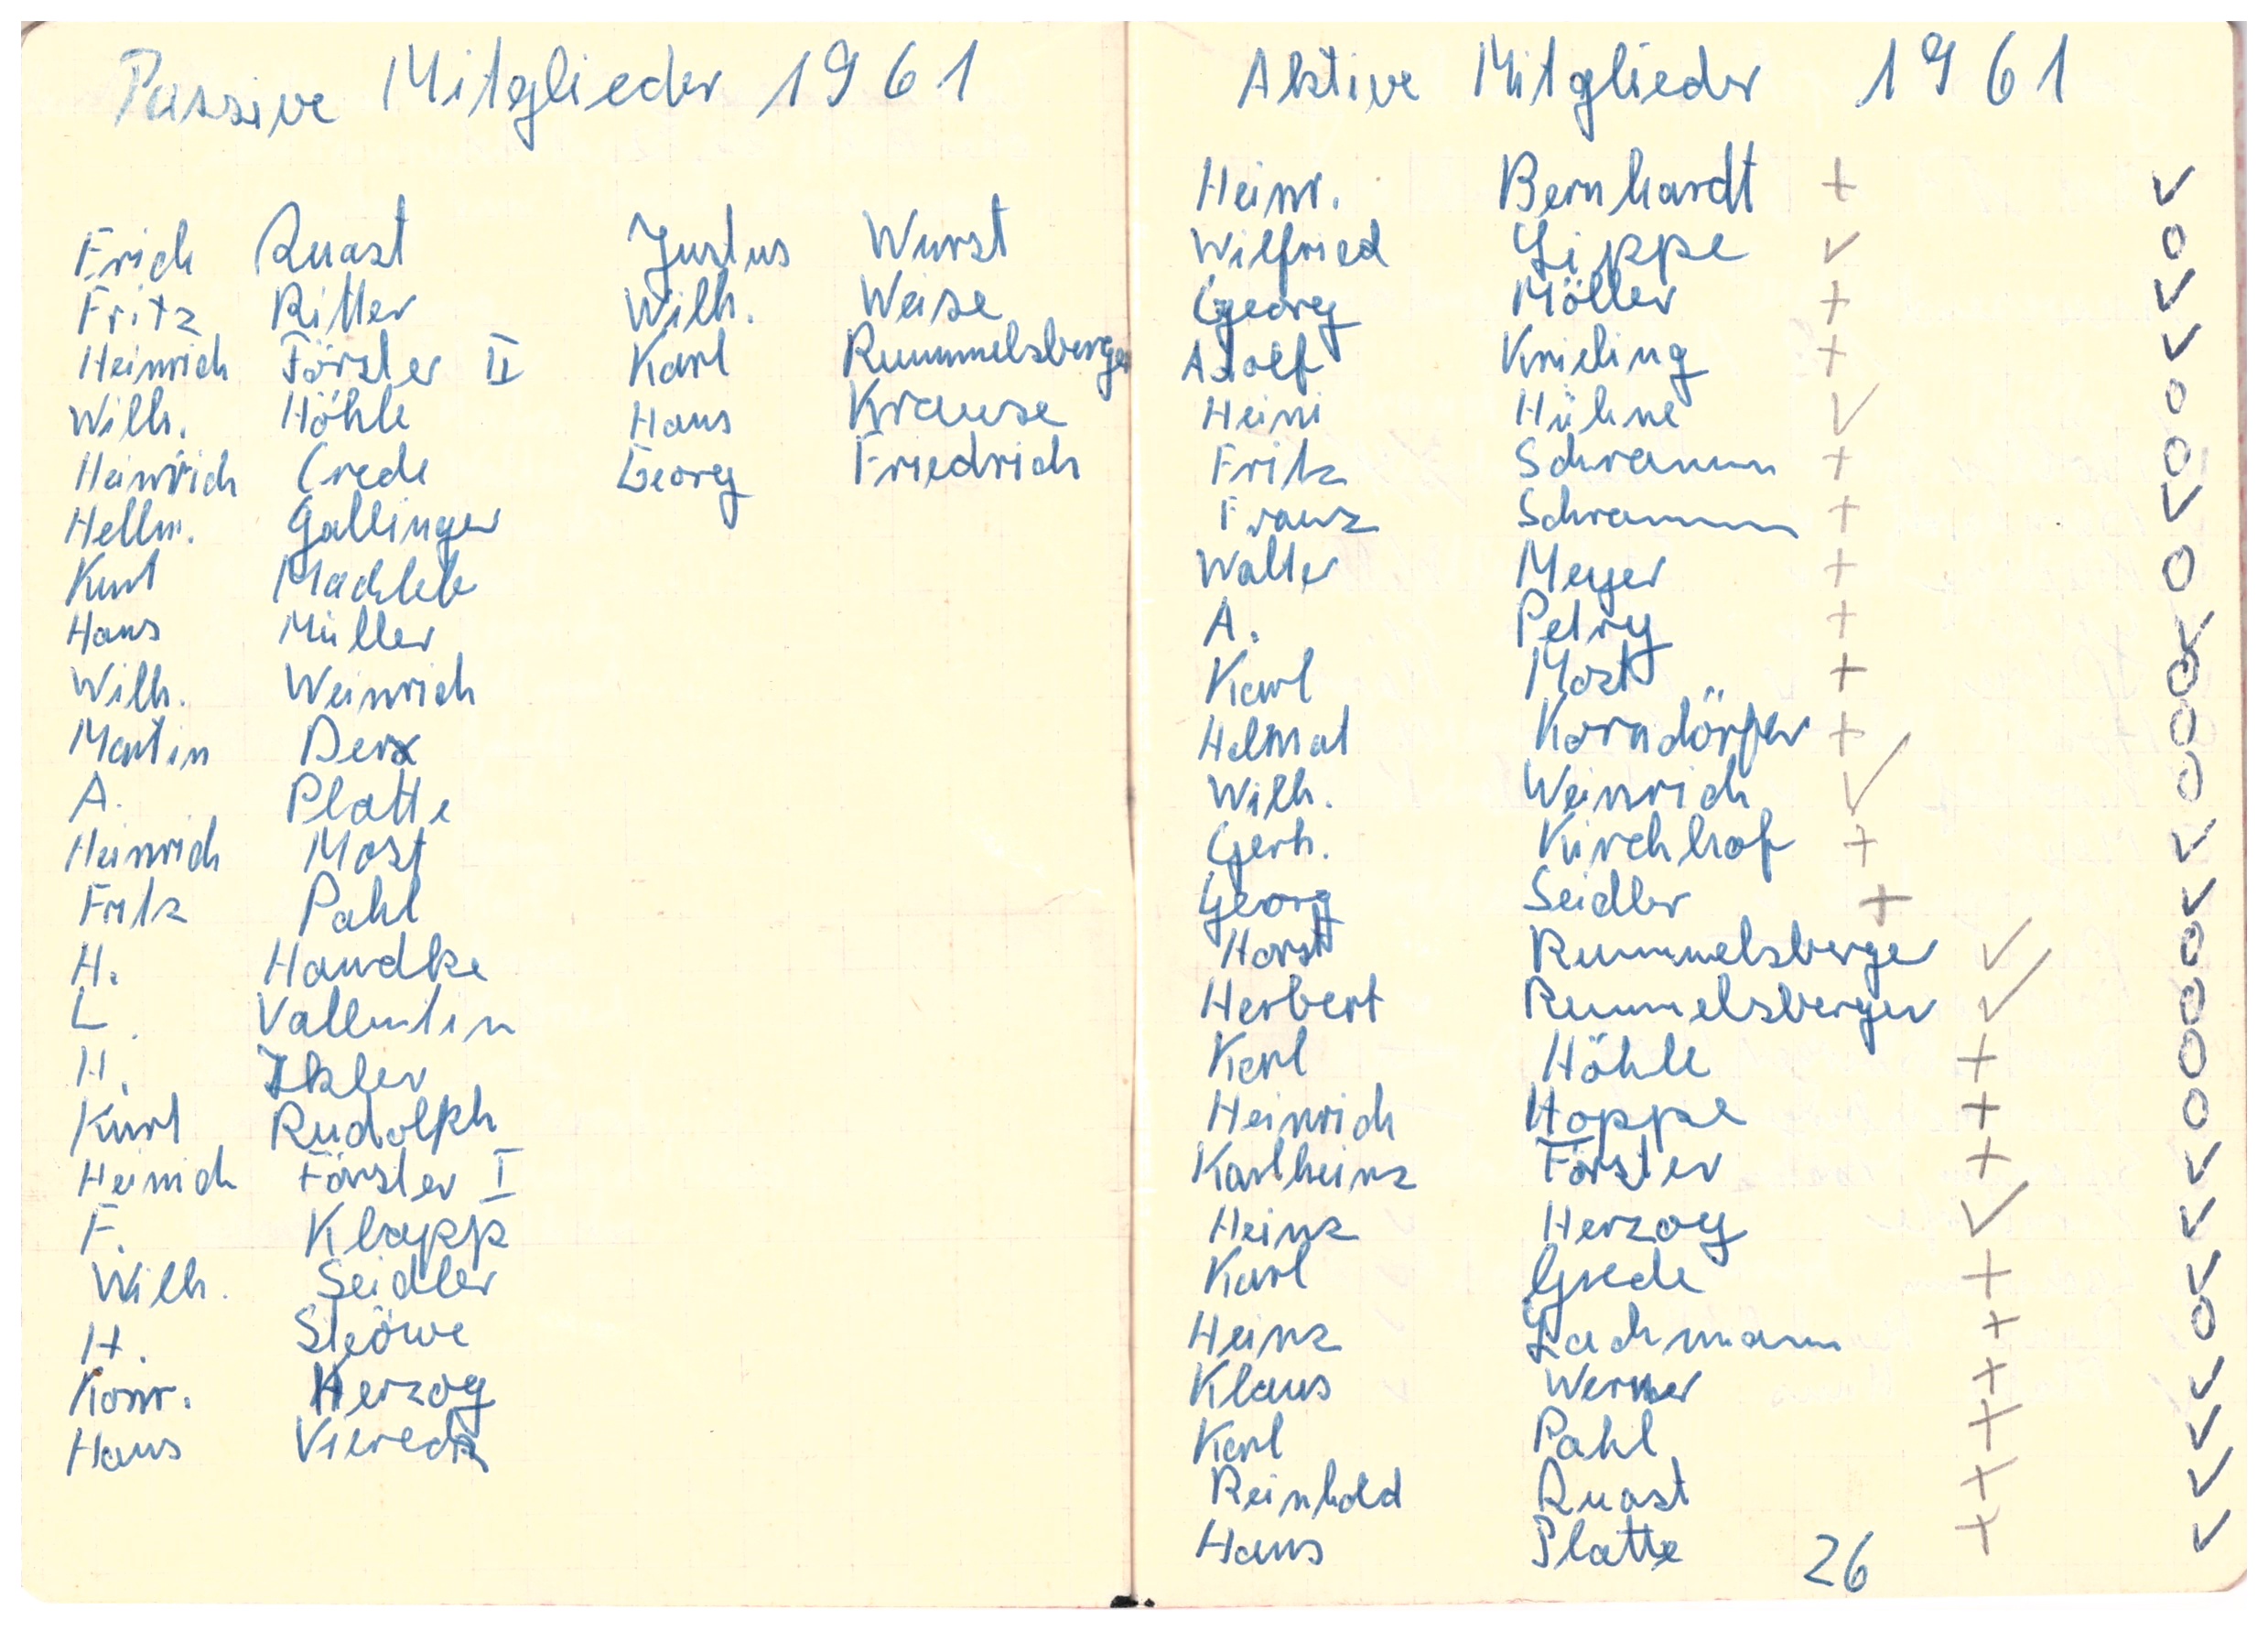 Passive Mitglieder 1961
Erich Quast
Fritz Ritter
Heinrich Förster II
Wilh. Höhle
Heinrich Crede
Hellm. Gallinger
Kurt Machleb
Hans Müller
Wilh. Weinrich
Martin Derx
A. Platte
Heinrich Most
Fritz Pahl
H. Handke
L. Vallentin
H. Ikler
Kurt Rudolph
Heinrich Förster I
F. Klapp
Wilh. Seidler
H.
Konr. Herzog
Hans Viereck
Justus Wurst
Wilh. Weise
Karl Rummelsberger
Hans Krause
Georg Friedrich
Aktive Mitglieder 1961
Heinr. Bernhardt + ✓
Wilfried Lippe ✓ O
Georg Möller + ✓
Adolf Knieling + ✓
Heini Hühne ✓ O
Fritz Schramm + O
Franz Schramm + ✓
Walter Meyer + O
A. Petry + ✓
Karl Most + O
Helmut Korndörfer + O
Wilh. Weinrich ✓ O
Gerh. Kirchhof + ✓
Georg Seidler + ✓
Horst Rummelsberger ✓ O
Herbert Rummelsberger ✓ O
Karl Höhle + O
Heinrich Hoppe + O
Karlheinz Förster + ✓
Heinz Herzog ✓ ✓
Karl Grede + ✓
Heinz Lachmann + O
Klaus Werner + ✓
Karl Pahl + ✓
Reinhold Quast + ✓
Hans Platte 26 + ✓